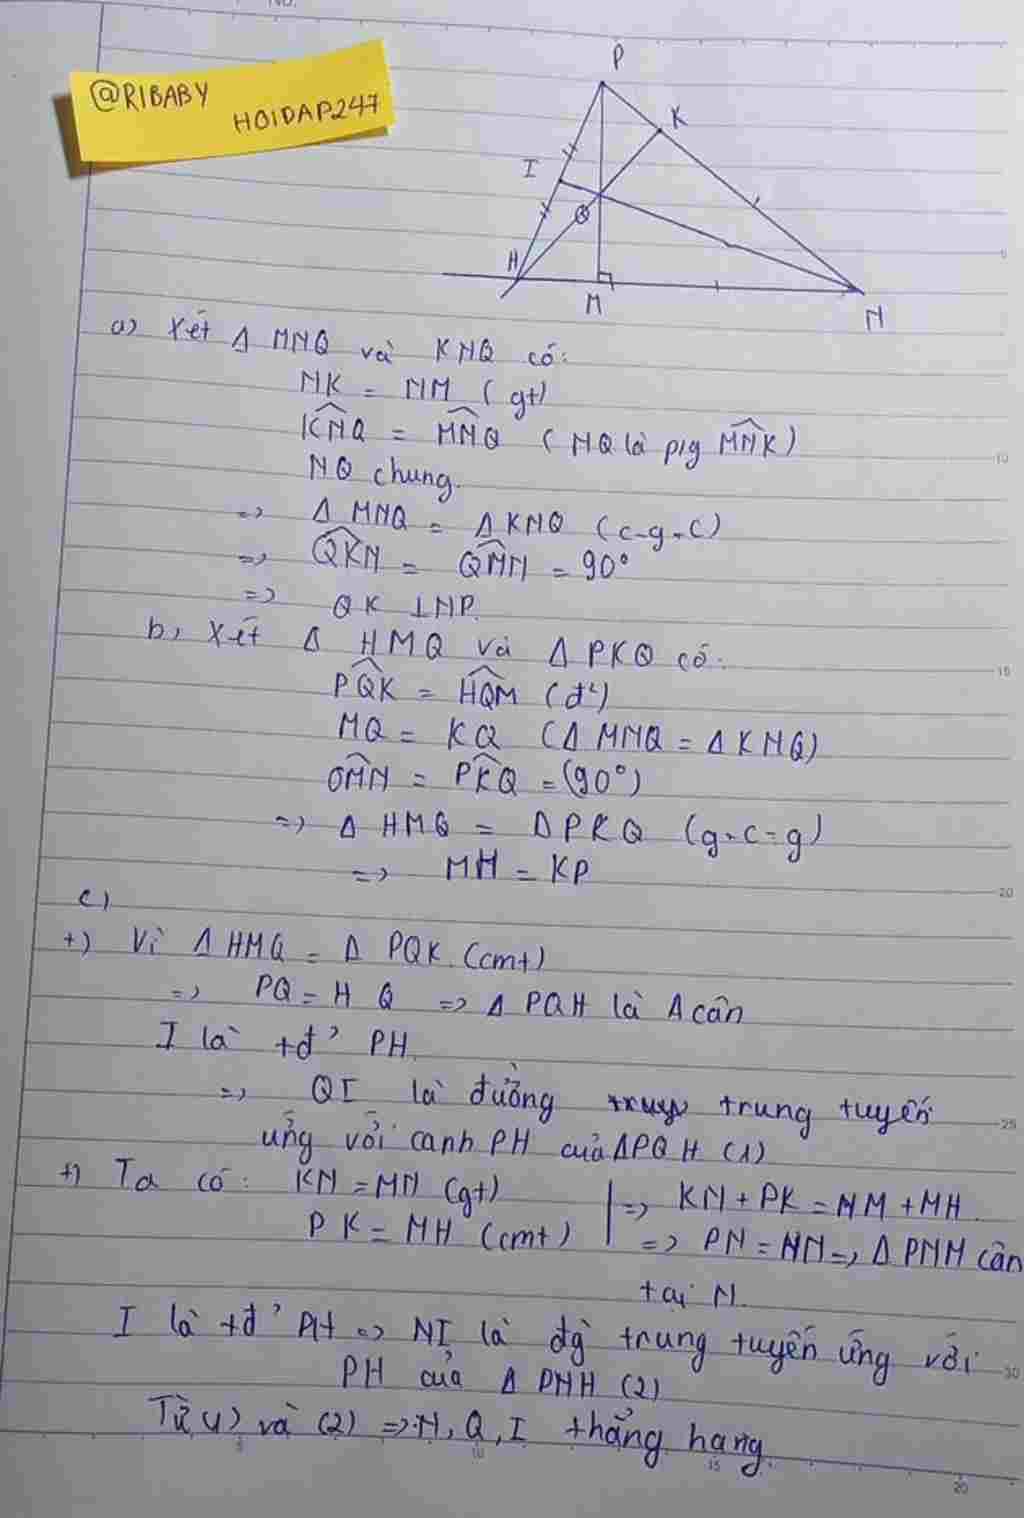 @RIBABY
HOIDAP247
P
K
I
Q
H
M
N
a) Xét Δ MNQ và KNQ có:
NK = NM (gt)
KNQ = MNQ (NQ là p/g MNK)
NQ chung.
=> Δ MNQ = Δ KNQ (c-g-c)
=> QKN = QMN = 90°
=> QK ⊥ NP.
b, Xét Δ HMQ và Δ PKQ có:
PQK = HQM (đ²)
MQ = KQ (Δ MNQ = Δ KNQ)
QMN = PKQ = (90°)
=> Δ HMQ = Δ PKQ (g-c-g)
=> MH = KP
c)
+) Vì Δ HMQ = Δ PQK (cmt)
=> PQ = HQ => Δ PQH là Δ cân
I là tđ' PH.
=> QI là đường trung tuyến
ứng với cạnh PH của ΔPQH (1)
+) Ta có: KN = MN (gt) => KN + PK = NM + MH
PK = MH (cmt) => PN = HN => Δ PNH cân
tại N.
I là tđ' PH => NI là đg trung tuyến ứng với
PH của Δ PNH (2)
Từ (1) và (2) => N, Q, I thẳng hang.
5
10
15
20
25
30
5
10
15
20